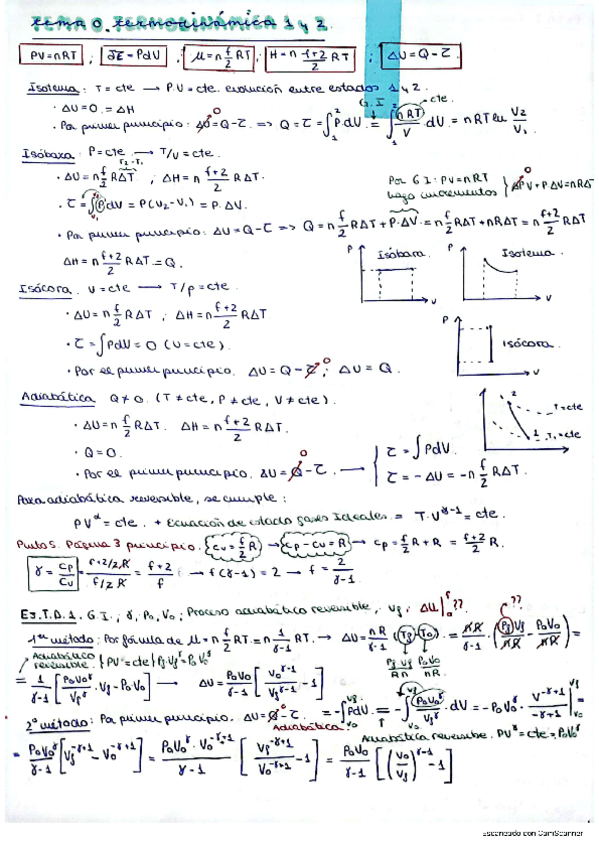 Tema 0. Termodinámica 1 y 2.
PV=nRT ; δE=PdV ; μ=n f/2 RT ; H=n f+2/2 RT ; ΔU=Q-τ.
Isoterma: T=cte → P.V=cte. evolución entre estados 1 y 2.
· ΔU=0=ΔH
· Por primer principio: ΔU=Q-τ. => Q=τ=∫₁² P dU = ∫₁² nRT/V dU = nRT ln V₂/V₁
G.I
cte.
0
Isóbara: P=cte → T/V=cte.
T₂-T₁
· ΔU=n f/2 RΔT ; ΔH=n f+2/2 RΔT.
Por G I: PV=nRT
hago incrementos } ΔPV+PΔV=nRΔT
0
· τ=∫PdV = P(V₂-V₁) = P.ΔV.
· Por primer principio: ΔU=Q-τ => Q=n f/2 RΔT+P.ΔV=n f/2 RΔT+nRΔT=n f+2/2 RΔT
ΔH=n f+2/2 RΔT=Q.
P Isóbara V
P Isoterma V
Isócora. V=cte → T/P=cte.
· ΔU=n f/2 RΔT ; ΔH=n f+2/2 RΔT
P Isócora V
· τ=∫PdU=0 (V=cte).
· Por el primer principio. ΔU=Q-τ; ΔU=Q.
0
Adiabática Q≠0. (T≠cte, P≠cte, V≠cte).
2 T₂=cte
1 T₁=cte
· ΔU=n f/2 RΔT. ΔH=n f+2/2 RΔT.
· Q=0.
· Por el primer principio. ΔU=Q-τ. → { τ=∫PdV.
0
τ=-ΔU=-n f/2 RΔT.
Para adiabática reversible, se cumple:
PVᵅ=cte. + Ecuación de estado gases Ideales = T.V^γ-1=cte.
Punto 5. Página 3 principio. (Cv=f/2 R) → (Cp-Cv=R) → Cp=f/2 R+R = f+2/2 R.
γ=Cp/Cv = f+2/2 R / f/2 R = f+2/f → f(γ-1)=2 → f=2/γ-1
Ej.T.D.1. G.I., γ, P₀, V₀; Proceso adiabático reversible, Vf, ΔU]₀ᶠ ??
??
1er método: Por fórmula de μ=n f/2 RT.=n 1/γ-1 RT. → ΔU=nR/γ-1 (Tf-T₀) = nR/γ-1 (PfVf/nR - P₀V₀/nR) =
Pf Vf/Rn P₀V₀/nR
Adiabático reversible. } PVᵞ=cte } PfVfᵞ=P₀V₀ᵞ
= 1/γ-1 [P₀V₀ᵞ/Vfᵞ .Vf-P₀V₀] → ΔU=P₀V₀/γ-1 [V₀^γ-1/Vf^γ-1 -1]
2º método: Por primer principio. ΔU=Q-τ. = -∫PdV = -∫ P₀V₀ᵞ/Vᵞ dU = -P₀V₀ᵞ. V^-γ+1/-γ+1 ]Vf V₀ =
Adiabática.
Adiabática reversible. PVᵞ=cte=P₀V₀ᵞ
= P₀V₀ᵞ/γ-1 [Vf^-γ+1 - V₀^-γ+1] = P₀V₀ᵞ.V₀^-γ+1/γ-1 [Vf^-γ+1/V₀^-γ+1 -1] = P₀V₀/γ-1 [(V₀/Vf)^γ-1 -1]
Escaneado con CamScanner